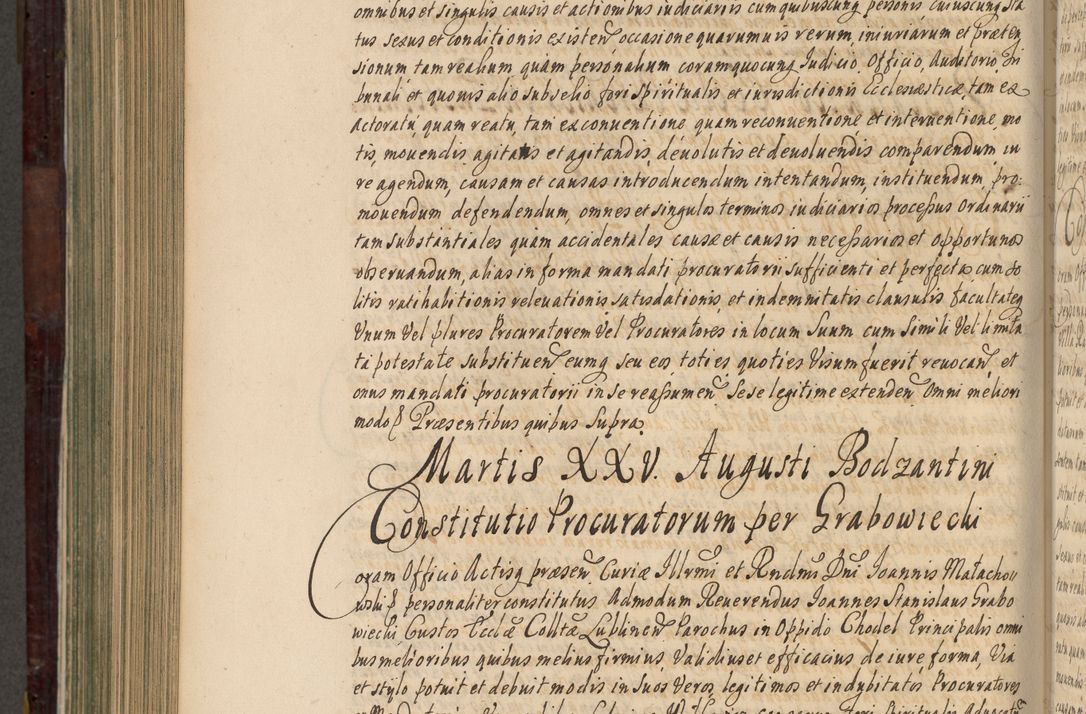 omnibus et singulis causis et actionibus iudiciariis cum quibuscunq personis cuiuscunq sta
tus sexus et conditionis existeñ occasione quarumuis rerum, iniuriarum et præten
sionum tam realium quàm personalium coram quocunq Iudicio, Officio, Auditorio, Tri
bunali et quouis alio subselio fori spiritualis et iurisdictionis Ecclesiæsticæ, tam ex
actoratu, quam reatu, tam ex conuentione quam reconuentione et interuentione, mo
tis, mouendis agitatis et agitandis, deuolutis et deuoluendis comparendum iu
re agendum, causam et causas introducendum intentandum, instituendum, pro:
mouendum defendendum, omnes et singulos terminos iudiciarios processus Ordinarii
tam substantiales quàm accidentales causæ et causis necessarios et opportunos
obseruandum, alias in forma mandati procuratorii sufficienti et perfecta cum so
litis ratihabitionis releuationis satisdationis, et indemnitatis clausulis facultateq
Vnum Vel plures Procuratorem Vel Procuratores in locum Suum cum Simili Vel limita
ta potestate substitueñ eumq seu eos toties quoties Visum fuerit reuocañ, et
onus mandati procuratorii in se reassumeñ Sese legitime extendeñ Omni meliori
modo ꝑ Præsentibus quibus Supra
Martis XXV. Augusti Bodzantini
Constitutio Procuratorum per Grabowiecki
Coram Officio Actisq præseñ Curiæ Illrmi et Rndmi Dni Ioannis Małachow
wski ꝑ personaliter constitutus Admodum Reuerendus Ioannes Stanislaus Grabo
wiecki Custos Ecclæ Colltæ Lublineñ Parochus in Oppido Chodel Principalis omni
bus melioribus quibus melius firmius, Validius et efficacius de iure, forma, Via
et stylo potuit et debuit modis in Suos Veros, legitimos et indubitatos Procuratores